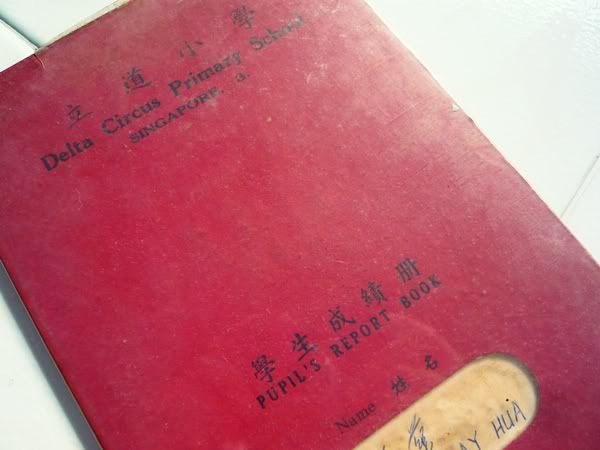 立道小學
Delta Circus Primary School
SINGAPORE. 3.
學生成績册
PUPIL'S REPORT BOOK
Name 姓名
AY HUA